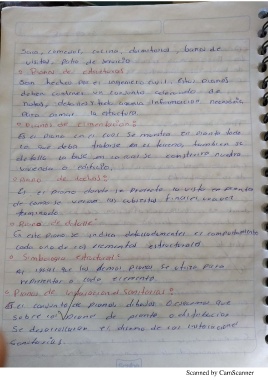 Sala, comedor, cocina, dormitorios, baños de
visitas, patio de servicio
° Planos de estructural:
Son hechos por el ingeniero civil. Estos planos
deben contener un conjunto de
notas, detalles y toda la información necesaria
Para la estructura
° Planos de Cimentacion:
Es el plano en el cual se muestra en planta donde
se que deba el terreno también se
detalla la base en la cual se construirá nuestra
vivienda o edificio.
Planos de techos:
Es el plano donde se Presenta la vista en planta
de como se veran las cubiertas finales
terminado
° Plano de detalle:
En este plano se indica detalladamente el comportamiento
cada uno de los elementos estructurales
° Simbologia estructural:
Al igual que los demas planos se utiliza para
representar a cada elemento.
° Planos de instalaciones Sanitarias:
Es el conjunto de planos, dibujos, Esquemas que
sobre los planos de planta o edificacion
Se desarrollan el diseño de las instalaciones
Sanitarias.
Scanned by CamScanner